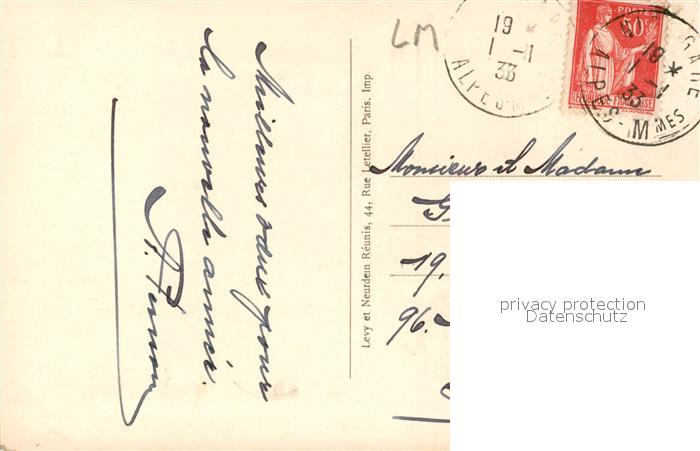 Meilleurs vœux pour
la nouvelle année.
Levy et Neurdein Réunis, 44, Rue Letellier, Paris, Imp.
LM
19
1 -11
33
ALPES-M
POSTES
50c
REPUBLIQUE FRANÇAISE
GARE
19 *
1 -11
33
ALPES-MMES
Monsieur et Madame
G
19,
96.
privacy protection
Datenschutz